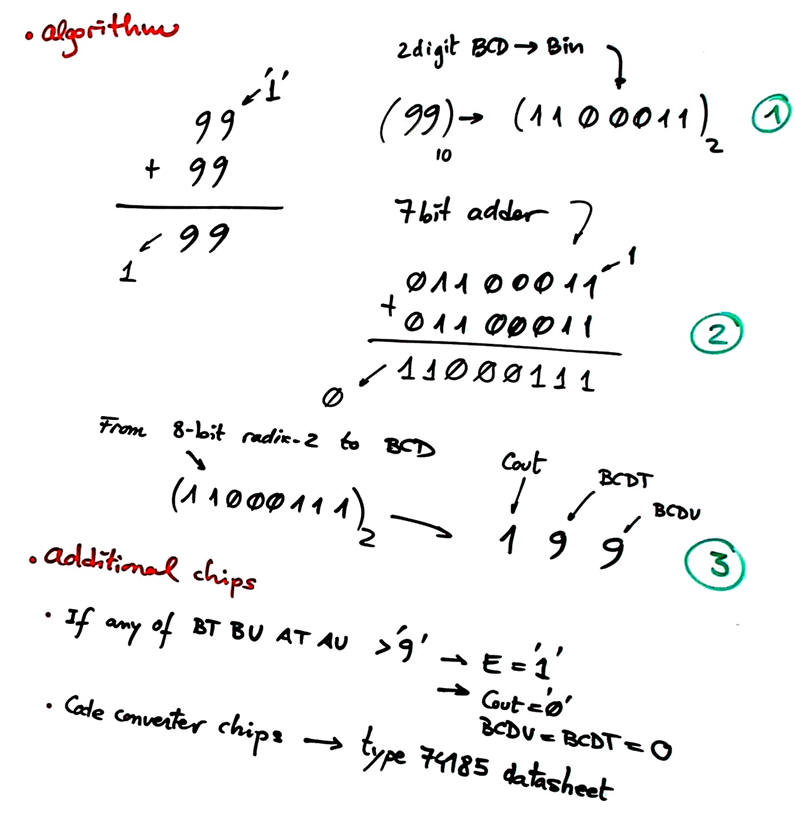 • algorithm
'1'
99
+ 99
199
2digit BCD → Bin
(99)10 → (1100011)2 1
7bit adder
1
01100011
+ 01100011
0 11000111
2
From 8-bit radix-2 to BCD
(11000111)2 → 1 9 9
Cout
BCDT
BCDU
3
• Additional chips
• If any of BT BU AT AU > '9' → E = '1'
→ Cout = '0'
BCDU = BCDT = 0
• Code converter chips → type 74185 datasheet